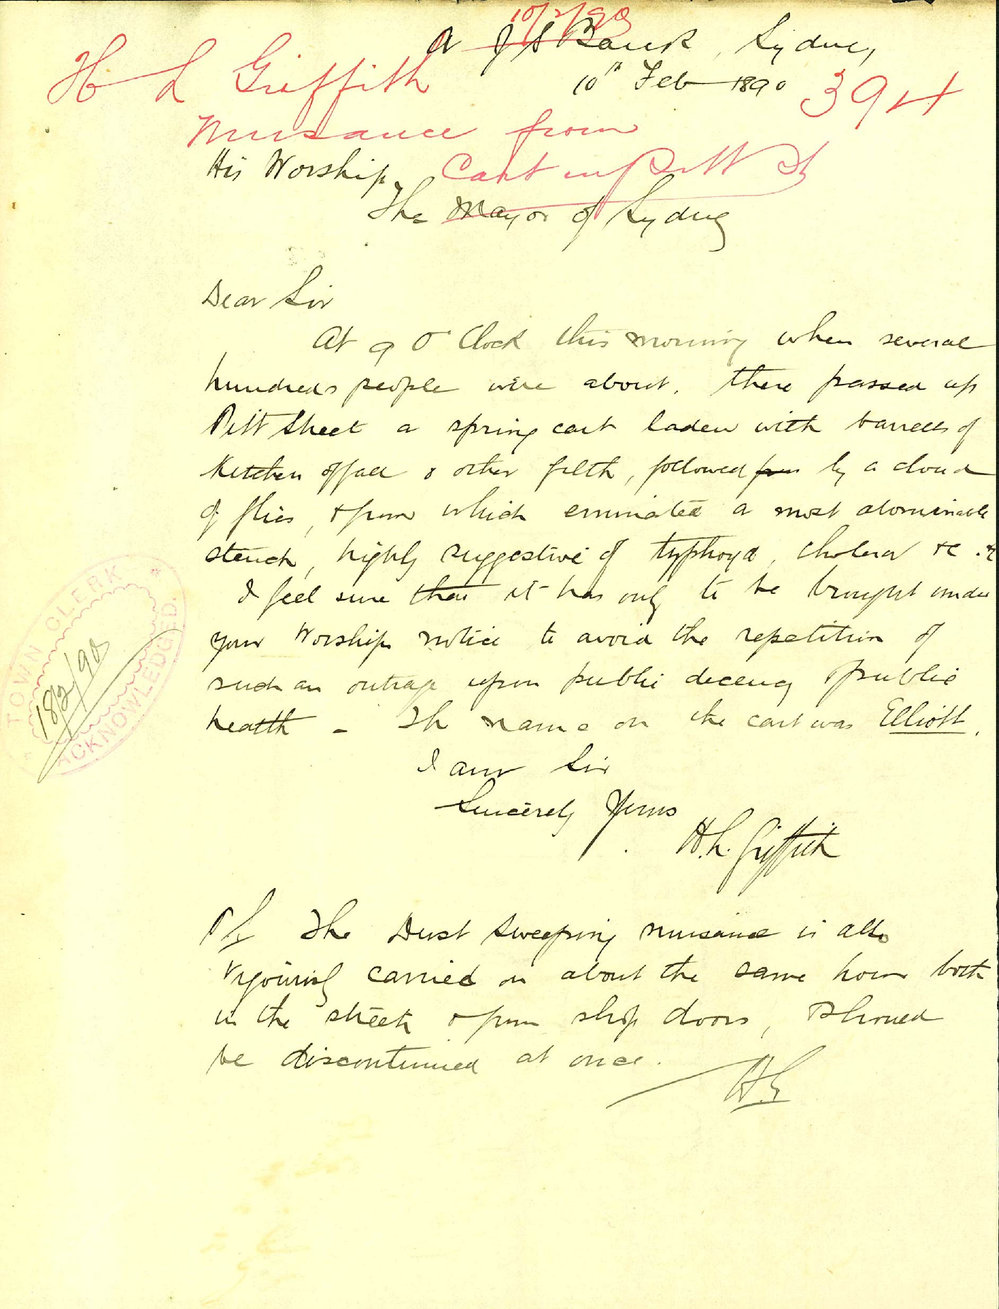 10/2/90
A J S Bank, Sydney
10th Feb 1890
H L Griffith
394
Nuisance from
Cart in Pitt St
His Worship
The Mayor of Sydney
Dear Sir
At 9 O'Clock this morning when several
hundreds people were about, there passed up
Pitt Street a spring cart laden with barrells of
Kitchen offal & other filth, followed by a cloud
of flies, & from which eminated a most abominable
stench, highly suggestive of typhoyd, cholera &c.
I feel sure that it has only to be brought under
your Worships notice to avoid the repetition of
such an outrage upon public decency & public
health - The name on the cart was Elliott.
I am Sir
Sincerely Yours
H. L. Griffith
TOWN CLERK
18/2/90
ACKNOWLEDGED.
PS The Dust Sweeping nuisance is also
vigorously carried on about the same hour both
in the streets & from shop doors, & should
be discontinued at once.
H.G